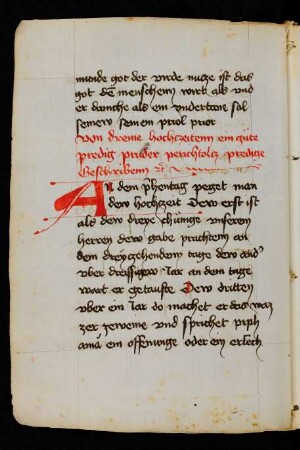 got der wirde nucze ist das
got den menschem wort als vnd
er dancke als ein vndertan sol
seinem prior
Von dreine hochzeitem ein gute
predig pruder perchtoltz predige
Geschribem
An dem p̄hentag peget man
drew hochzeit Dew erst ist
als dew dreye chünige vnserem
herren drew gabe prachtem an
dem dreyzehendem tage dew and'
vber dreissigew Jar an dem tage
wart er getaufte Dew dritten
vber ein Jar do machet er das was
zer ze weine vnd sprichet piph
ania ein offenunge oder ein erlech